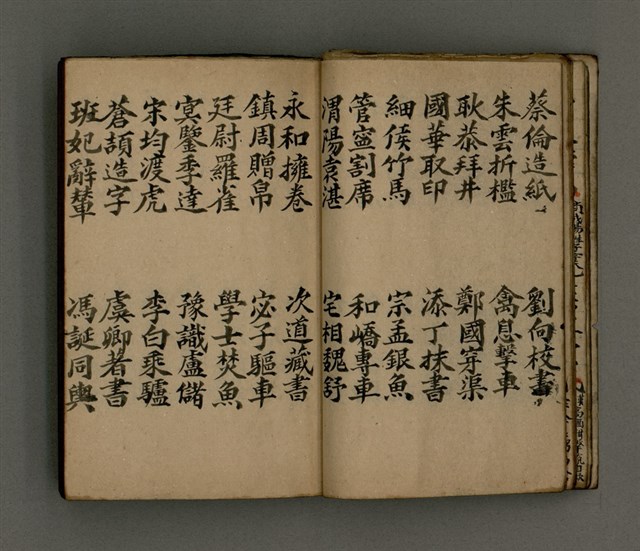 蔡倫造紙 劉向校書
朱雲折檻 禽息擊車
耿恭拜井 鄭國穿渠
國華取印 添丁抹書
細侯竹馬 宗孟銀魚
管寍割席 和嶠專車
渭陽袁湛 宅相魏舒
永和擁卷 次道藏書
鎮周贈帛 宓子驅車
廷尉羅雀 學士焚魚
冥鑒季達 豫識盧儲
宋均渡虎 李白乘驢
蒼頡造字 虞卿著書
班妃辭輦 馮誕同輿